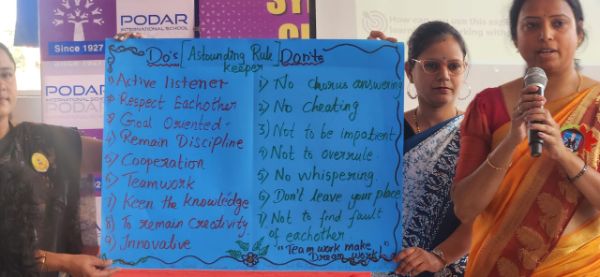 PODAR
INTERNATIONAL SCHOOL
Since 1927
PODAR
INTERNATIONAL SCHOOL
Do's
Astounding Rule
keeper
Don'ts
1) Active listener
2) Respect Eachother
3) Goal Oriented.
4) Remain Discipline
5) Cooperation
6) Teamwork
7) Keen the knowledge
8) To remain Creativity.
9) Innovative
1) No chorus answering
2) No cheating
3) Not to be impatient
4) Not to overrule.
5) No whispering.
6) Don't leave your place
7) Not to find fault
of eachother.
"Team work make
Dream work"
How can you use this
PODAR